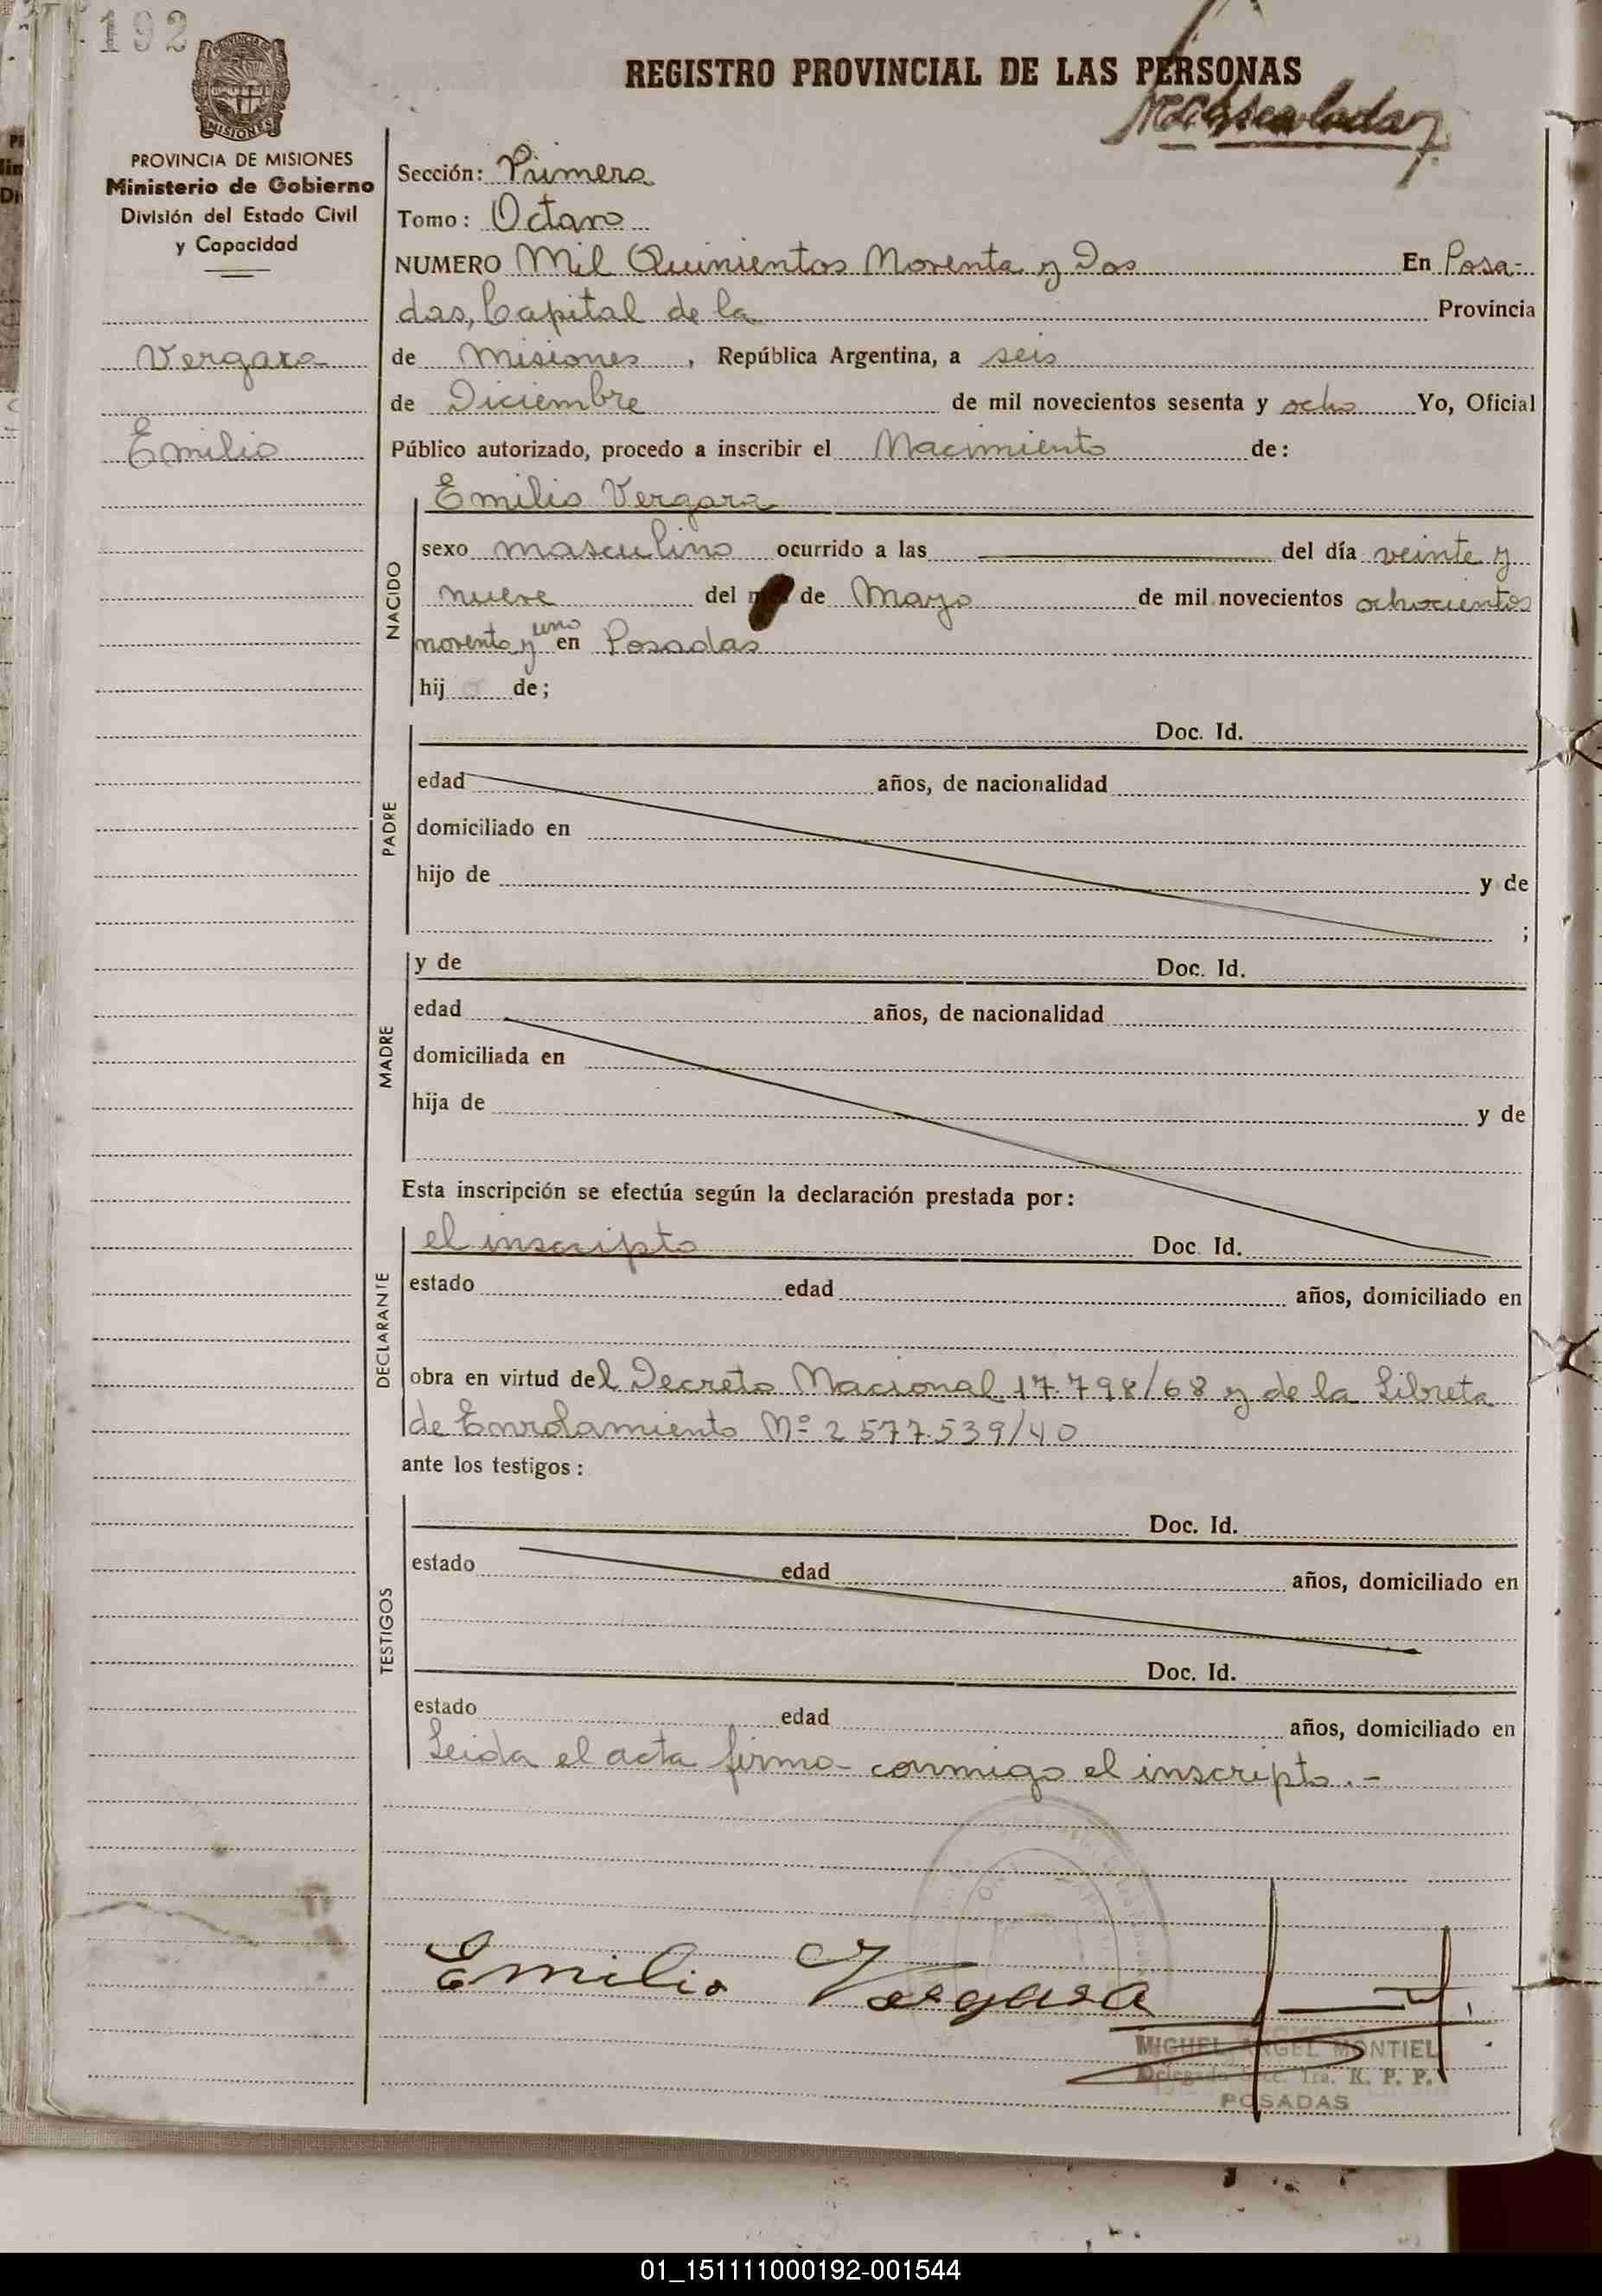 192
PROVINCIA DE MISIONES
Ministerio de Gobierno
División del Estado Civil
y Capacidad
Vergara
Emilio
REGISTRO PROVINCIAL DE LAS PERSONAS
Sección: Primera
Tomo: Octavo
NUMERO Mil Quinientos Noventa y Dos En Posa-
das, Capital de la Provincia
de Misiones, República Argentina, a seis
de Diciembre de mil novecientos sesenta y ocho Yo, Oficial
Público autorizado, procedo a inscribir el Nacimiento de:
NACIDO
Emilio Vergara
sexo masculino ocurrido a las del día veinte y
nueve del de Mayo de mil novecientos ochocientos
noventa y uno en Posadas
hij o de;
PADRE
Doc. Id.
edad años, de nacionalidad
domiciliado en
hijo de y de
;
MADRE
y de Doc. Id.
edad años, de nacionalidad
domiciliada en
hija de y de
Esta inscripción se efectúa según la declaración prestada por:
DECLARANTE
el inscripto Doc. Id.
estado edad años, domiciliado en
obra en virtud del Decreto Nacional 17.798/68 y de la Libreta
de Enrolamiento Nº 2577.539/40
ante los testigos:
TESTIGOS
Doc. Id.
estado edad años, domiciliado en
Doc. Id.
estado edad años, domiciliado en
Leida el acta firma conmigo el inscripto.-
Emilio Vergara
MIGUEL ANGEL MONTIEL
Delegado Secc. 1ra. R. P. P.
POSADAS
01_151111000192-001544